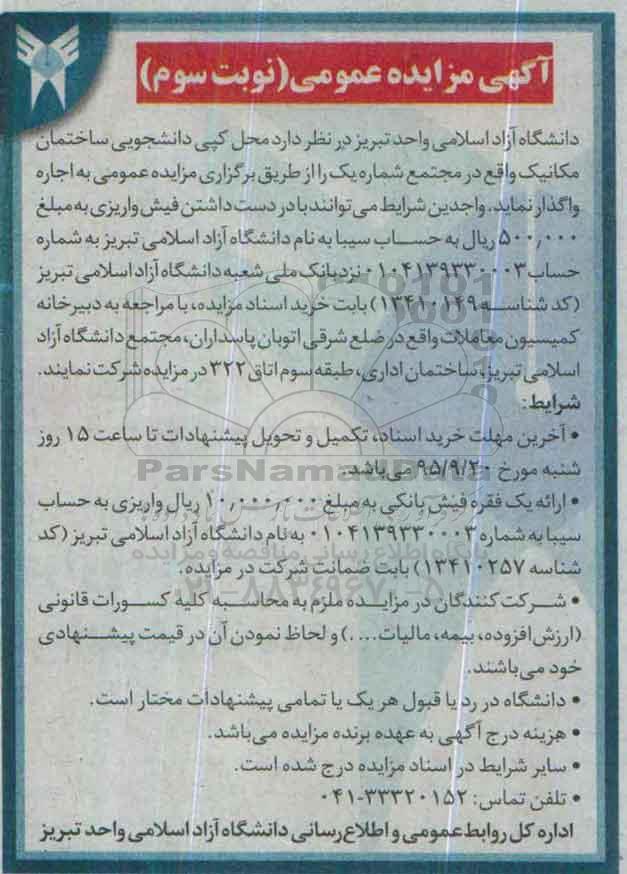 آگهی مزایده عمومی (نوبت سوم)
دانشگاه آزاد اسلامی واحد تبریز در نظر دارد محل کپی دانشجویی ساختمان
مکانیک واقع در مجتمع شماره یک را از طریق برگزاری مزایده عمومی به اجاره
واگذار نماید. واجدین شرایط می توانند با در دست داشتن فیش واریزی به مبلغ
۵۰۰,۰۰۰ ریال به حساب سیبا به نام دانشگاه آزاد اسلامی تبریز به شماره
حساب ۰۱۰۴۱۳۹۳۳۰۰۰۳ نزد بانک ملی شعبه دانشگاه آزاد اسلامی تبریز
(کد شناسه ۱۳۴۱۰۱۴۹) بابت خرید اسناد مزایده، با مراجعه به دبیرخانه
کمیسیون معاملات واقع در ضلع شرقی اتوبان پاسداران، مجتمع دانشگاه آزاد
اسلامی تبریز، ساختمان اداری، طبقه سوم اتاق ۳۲۲ در مزایده شرکت نمایند.
شرایط:
• آخرین مهلت خرید اسناد، تکمیل و تحویل پیشنهادات تا ساعت ۱۵ روز
شنبه مورخ ۹۵/۹/۲۰ می باشد.
• ارائه یک فقره فیش بانکی به مبلغ ۱۰,۰۰۰,۰۰۰ ریال واریزی به حساب
سیبا به شماره ۰۱۰۴۱۳۹۳۳۰۰۰۳ به نام دانشگاه آزاد اسلامی تبریز (کد
شناسه ۱۳۴۱۰۲۵۷) بابت ضمانت شرکت در مزایده.
• شرکت کنندگان در مزایده ملزم به محاسبه کلیه کسورات قانونی
(ارزش افزوده، بیمه، مالیات...) و لحاظ نمودن آن در قیمت پیشنهادی
خود می باشند.
• دانشگاه در رد یا قبول هر یک یا تمامی پیشنهادات مختار است.
• هزینه درج آگهی به عهده برنده مزایده می باشد.
• سایر شرایط در اسناد مزایده درج شده است.
• تلفن تماس: ۳۳۳۲۰۱۵۲-۰۴۱
اداره کل روابط عمومی و اطلاع رسانی دانشگاه آزاد اسلامی واحد تبریز
ParsNamadData
پایگاه اطلاع رسانی مناقصه و مزایده
۰۲۱-۸۸۳۴۹۶۷۰-۵